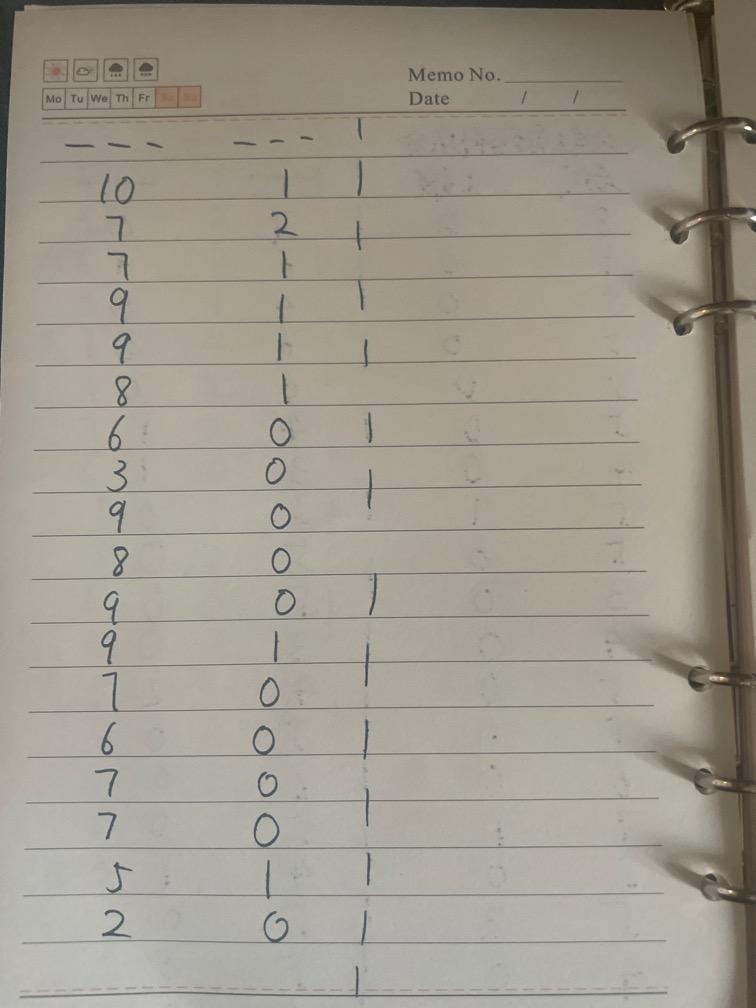 Memo No.
Mo Tu We Th Fr Sa Su
Date / /
--- --- |
10 1 |
7 2 |
7 1
9 1 |
9 1 |
8 1
6 0 |
3 0 |
9 0
8 0
9 0 |
9 1 |
7 0
6 0 |
7 0 |
7 0
5 1 |
2 0 |
|